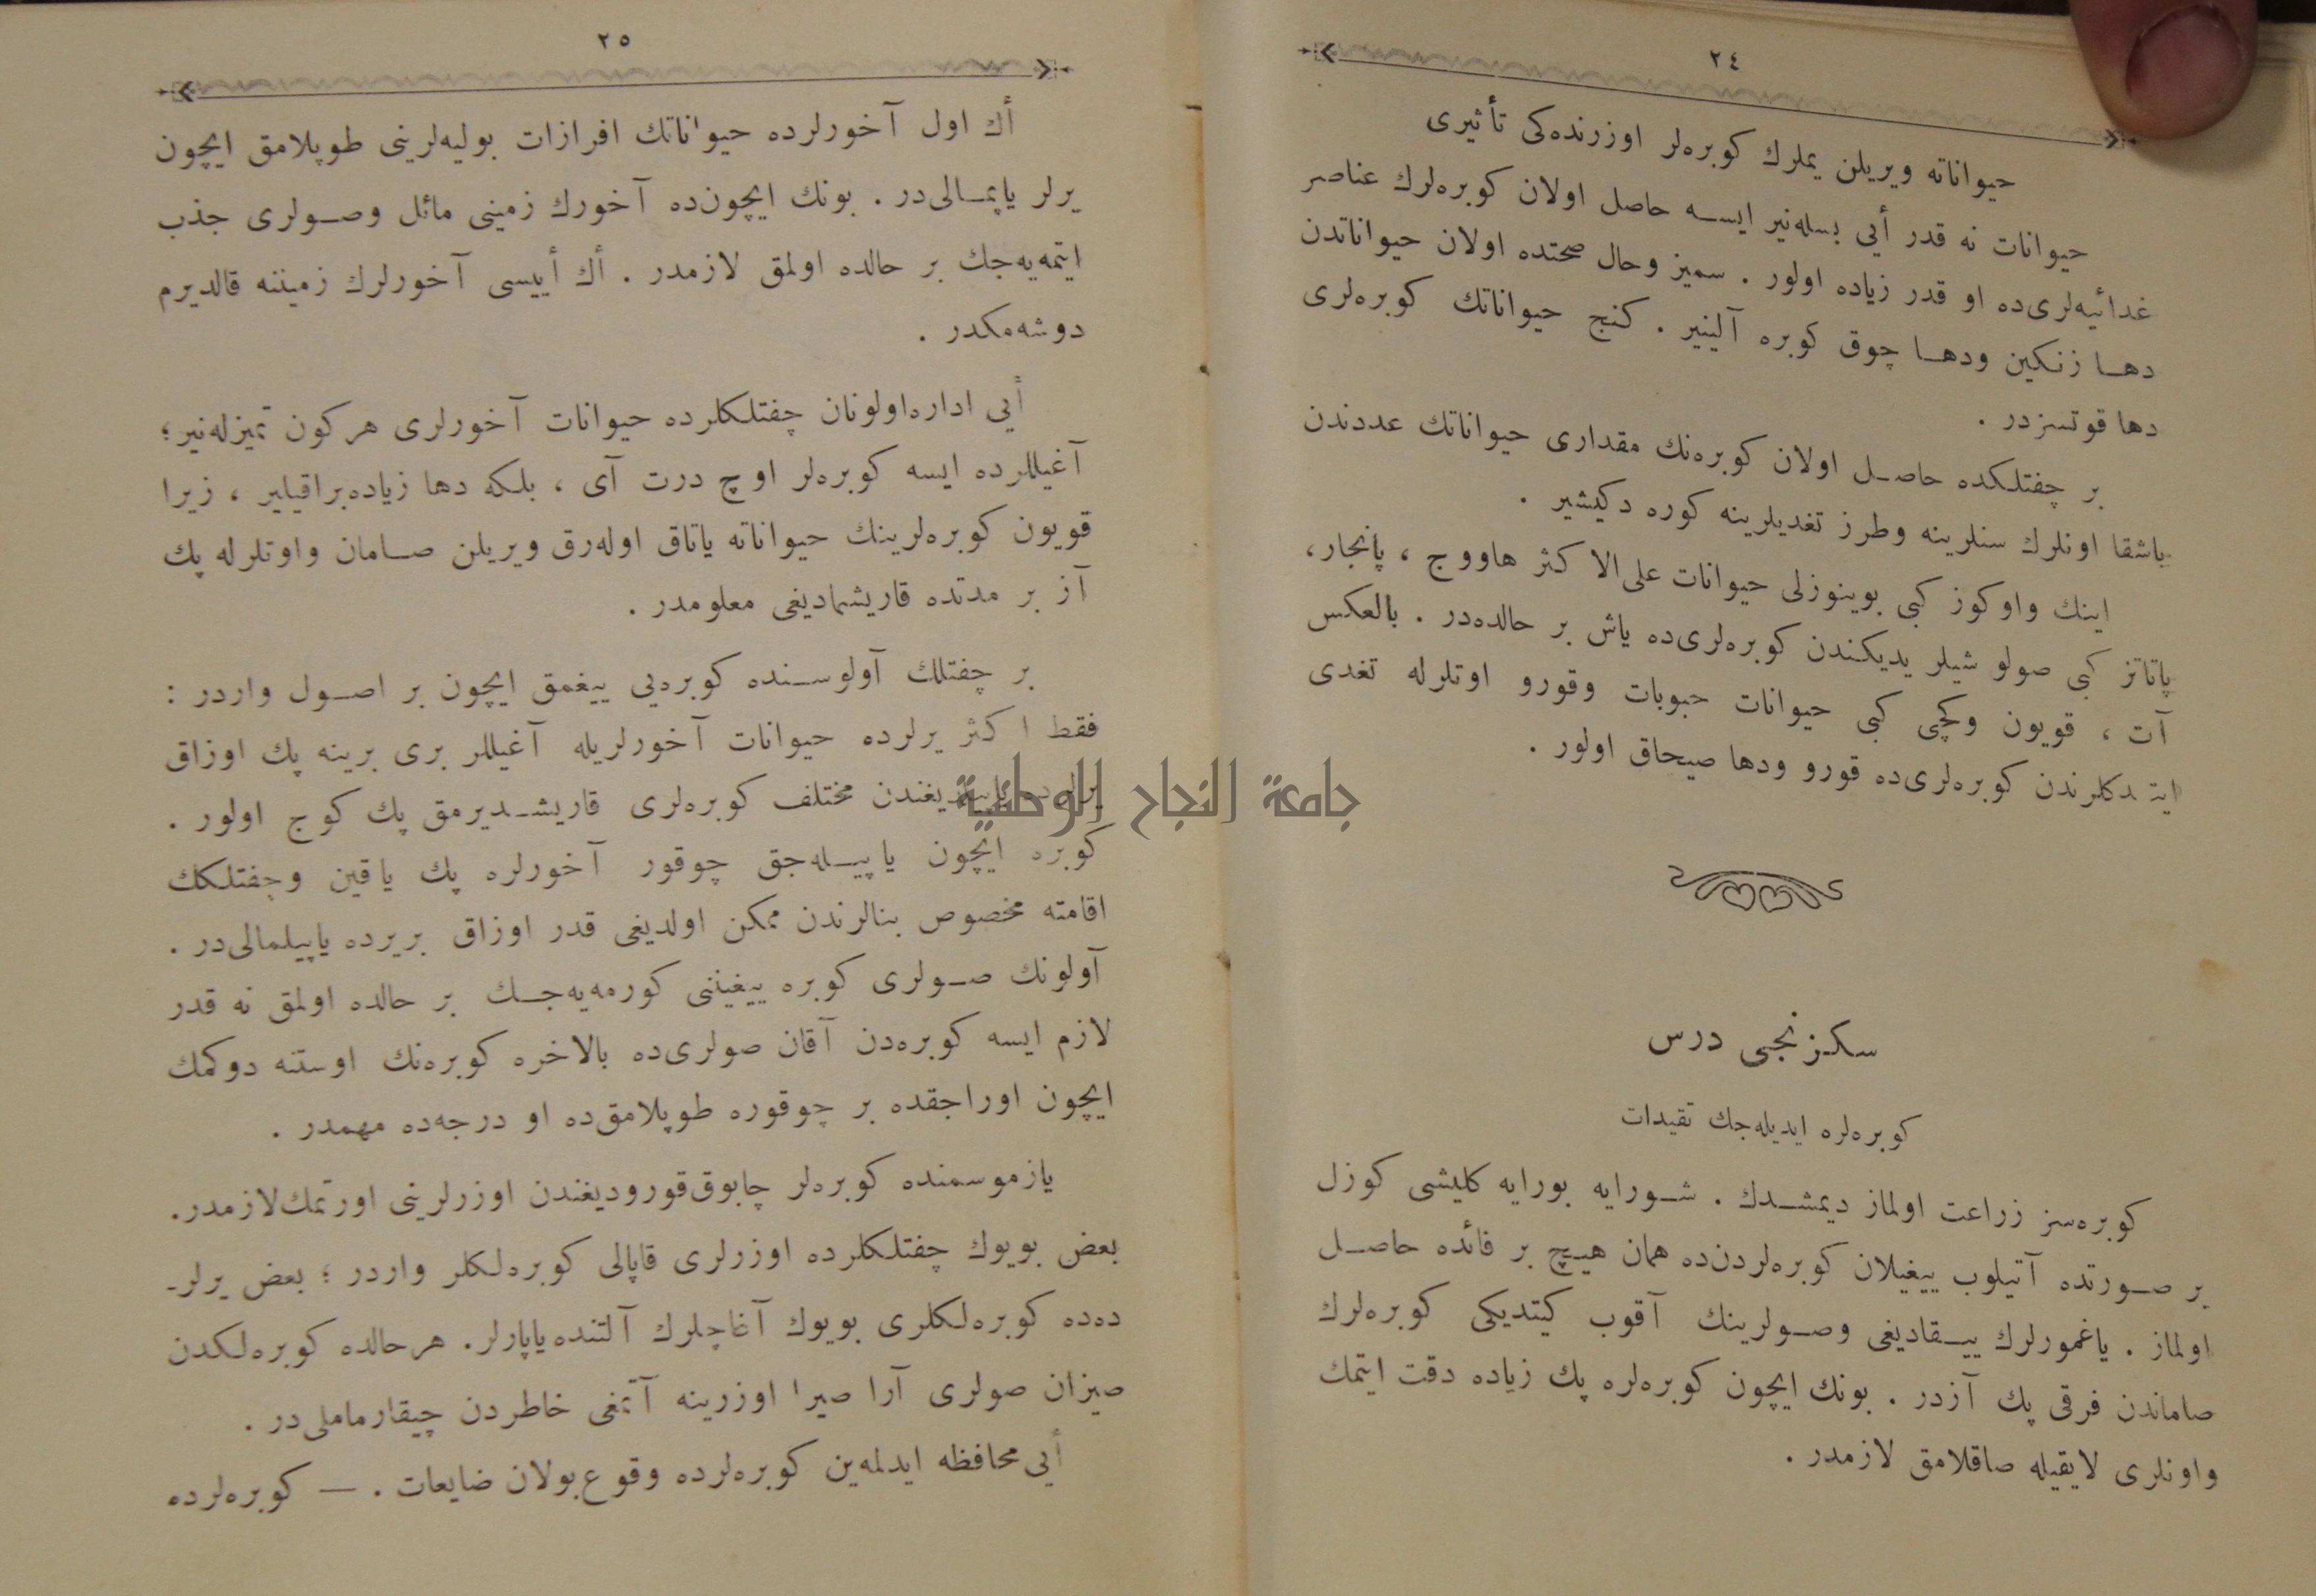 ٢٤
حیواناته ویریلن یملرك كوبره‌لر اوزرنده‌كی تأثیری
حیوانات نه قدر أیی بسله‌نیر ایسه حاصل اولان كوبره‌لرك عناصر
غدائیه‌لری‌ده او قدر زیاده اولور . سمیز وحال صحتده اولان حیواناتدن
دها زنكین ودها چوق كوبره آلینیر . كنج حیواناتك كوبره‌لری
دها قوتسزدر .
بر چفتلكده حاصل اولان كوبره‌نك مقداری حیواناتك عددندن
باشقا اونلرك سنلرینه وطرز تغدیلرینه كوره دكیشیر .
اینك واوكوز كبی بوینوزلی حیوانات علی‌الاكثر هاووج ، پانجار،
پاتاتز كبی صولو شیلر یدیكندن كوبره‌لری‌ده یاش بر حالده‌در . بالعكس
آت ، قویون وكچی كبی حیوانات حبوبات وقورو اوتلرله تغدی
ایتدكلرندن كوبره‌لری‌ده قورو ودها صیجاق اولور .
سكزنجی درس
كوبره‌لره ایدیله‌جك تقیدات
كوبره‌سز زراعت اولماز دیمشدك . شورایه بورایه كلیشی كوزل
بر صورتده آتیلوب ییغیلان كوبره‌لردن‌ده همان هیچ بر فائده حاصل
اولماز . یاغمورلرك ییقادیغی وصولرینك آقوب كیتدیكی كوبره‌لرك
صاماندن فرقی پك آزدر . بونك ایچون كوبره‌لره پك زیاده دقت ایتمك
واونلری لایقیله صاقلامق لازمدر .
٢٥
أك اول آخورلرده حیواناتك افرازات بولیه‌لرینی طوپلامق ایچون
یرلر یاپمالی‌در . بونك ایچون‌ده آخورك زمینی مائل وصولری جذب
ایتمه‌یه‌جك بر حالده اولمق لازمدر . أك أییسی آخورلرك زمیننه قالدیرم
دوشه‌مكدر .
أیی اداره‌اولونان چفتلكلرده حیوانات آخورلری هركون تمیزله‌نیر؛
آغیللرده ایسه كوبره‌لر اوچ درت آی ، بلكه دها زیاده‌براقیلیر ، زیرا
قویون كوبره‌لرینك حیواناته یاتاق اوله‌رق ویریلن صامان واوتلرله پك
آز بر مدتده قاریشمادیغی معلومدر .
بر چفتلك آولوسنده كوبره‌یی ییغمق ایچون بر اصول واردر :
فقط اكثر یرلرده حیوانات آخورلریله آغیللر بری برینه پك اوزاق
یرلرده یاپیلدیغندن مختلف كوبره‌لری قاریشدیرمق پك كوج اولور .
كوبره ایچون یاپیله‌جق چوقور آخورلره پك یاقین وچفتلكك
اقامته مخصوص بنالرندن ممكن اولدیغی قدر اوزاق بریرده یاپیلمالی‌در .
آولونك صولری كوبره ییغیننی كورمه‌یه‌جك بر حالده اولمق نه قدر
لازم ایسه كوبره‌دن آقان صولری‌ده بالاخره كوبره‌نك اوستنه دوكمك
ایچون اوراجقده بر چوقوره طوپلامق‌ده او درجه‌ده مهمدر .
یازموسمنده كوبره‌لر چابوق‌قورودیغندن اوزرلرینی اورتمك‌لازمدر.
بعض بویوك چفتلكلرده اوزرلری قاپالی كوبره‌لكلر واردر ؛ بعض یرلر-
ده‌ده كوبره‌لكلری بویوك آغاچلرك آلتنده‌یاپارلر. هرحالده كوبره‌لكدن
صیزان صولری آرا صیرا اوزرینه آتمغی خاطردن چیقارماملی‌در .
أیی محافظه ایدلمه‌ین كوبره‌لرده وقوع‌بولان ضایعات . — كوبره‌لرده
جامعة النجاح الوطنية